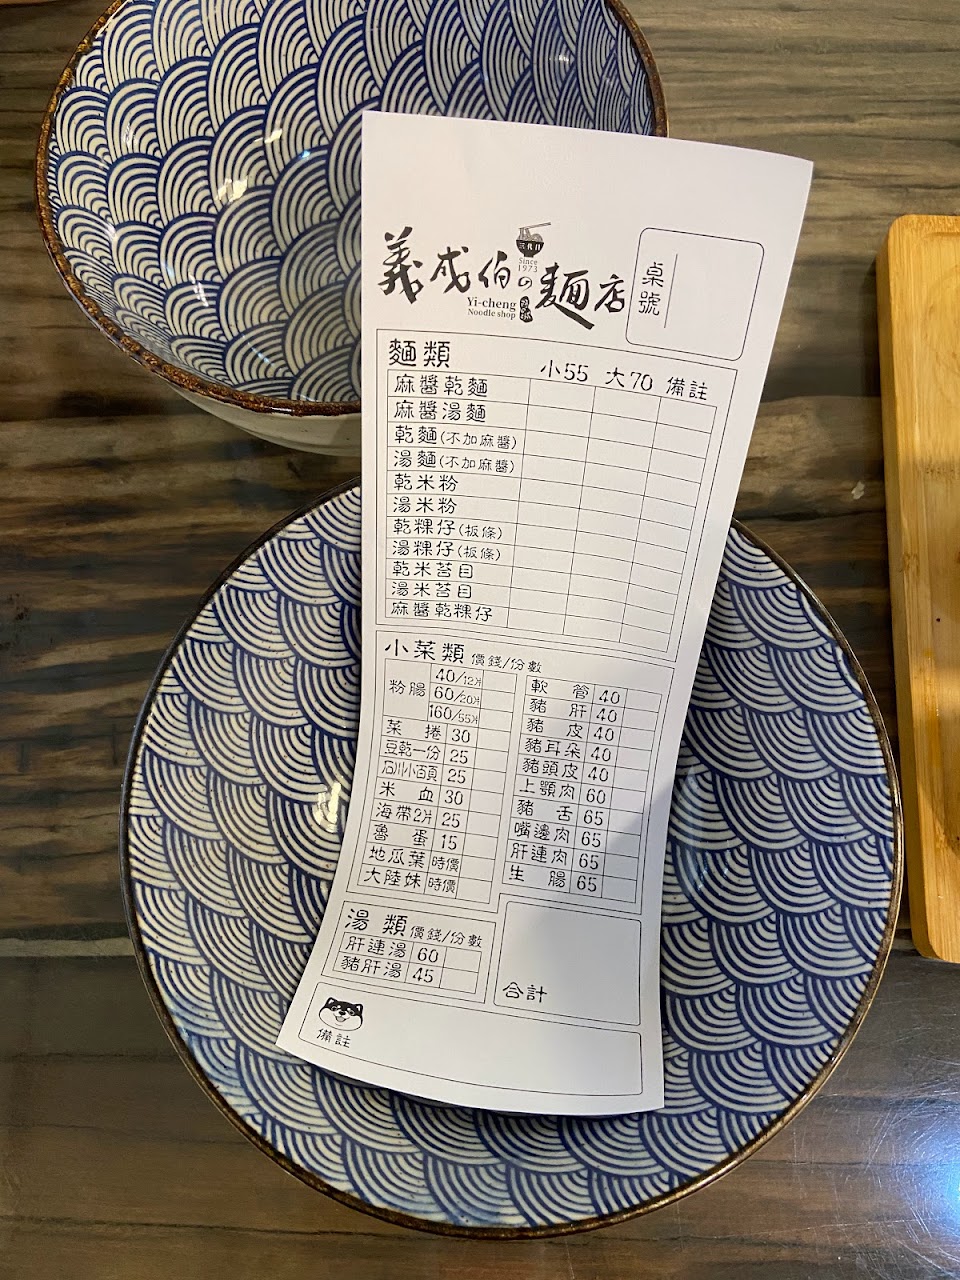 三代目
Since
1973
義成伯の麵店
Yi-cheng
Noodle shop
桌號
麵類 小55 大70 備註
麻醬乾麵
麻醬湯麵
乾麵(不加麻醬)
湯麵(不加麻醬)
乾米粉
湯米粉
乾粿仔(粄條)
湯粿仔(粄條)
乾米苔目
湯米苔目
麻醬乾粿仔
小菜類 價錢/份數
粉腸 40/12片
60/20片
160/55片
菜捲 30
豆乾一份 25
石川小百頁 25
米血 30
海帶2片 25
魯蛋 15
地瓜葉 時價
大陸妹 時價
軟管 40
豬肝 40
豬皮 40
豬耳朵 40
豬頭皮 40
上顎肉 60
豬舌 65
嘴邊肉 65
肝連肉 65
生腸 65
湯類 價錢/份數
肝連湯 60
豬肝湯 45
合計
備註